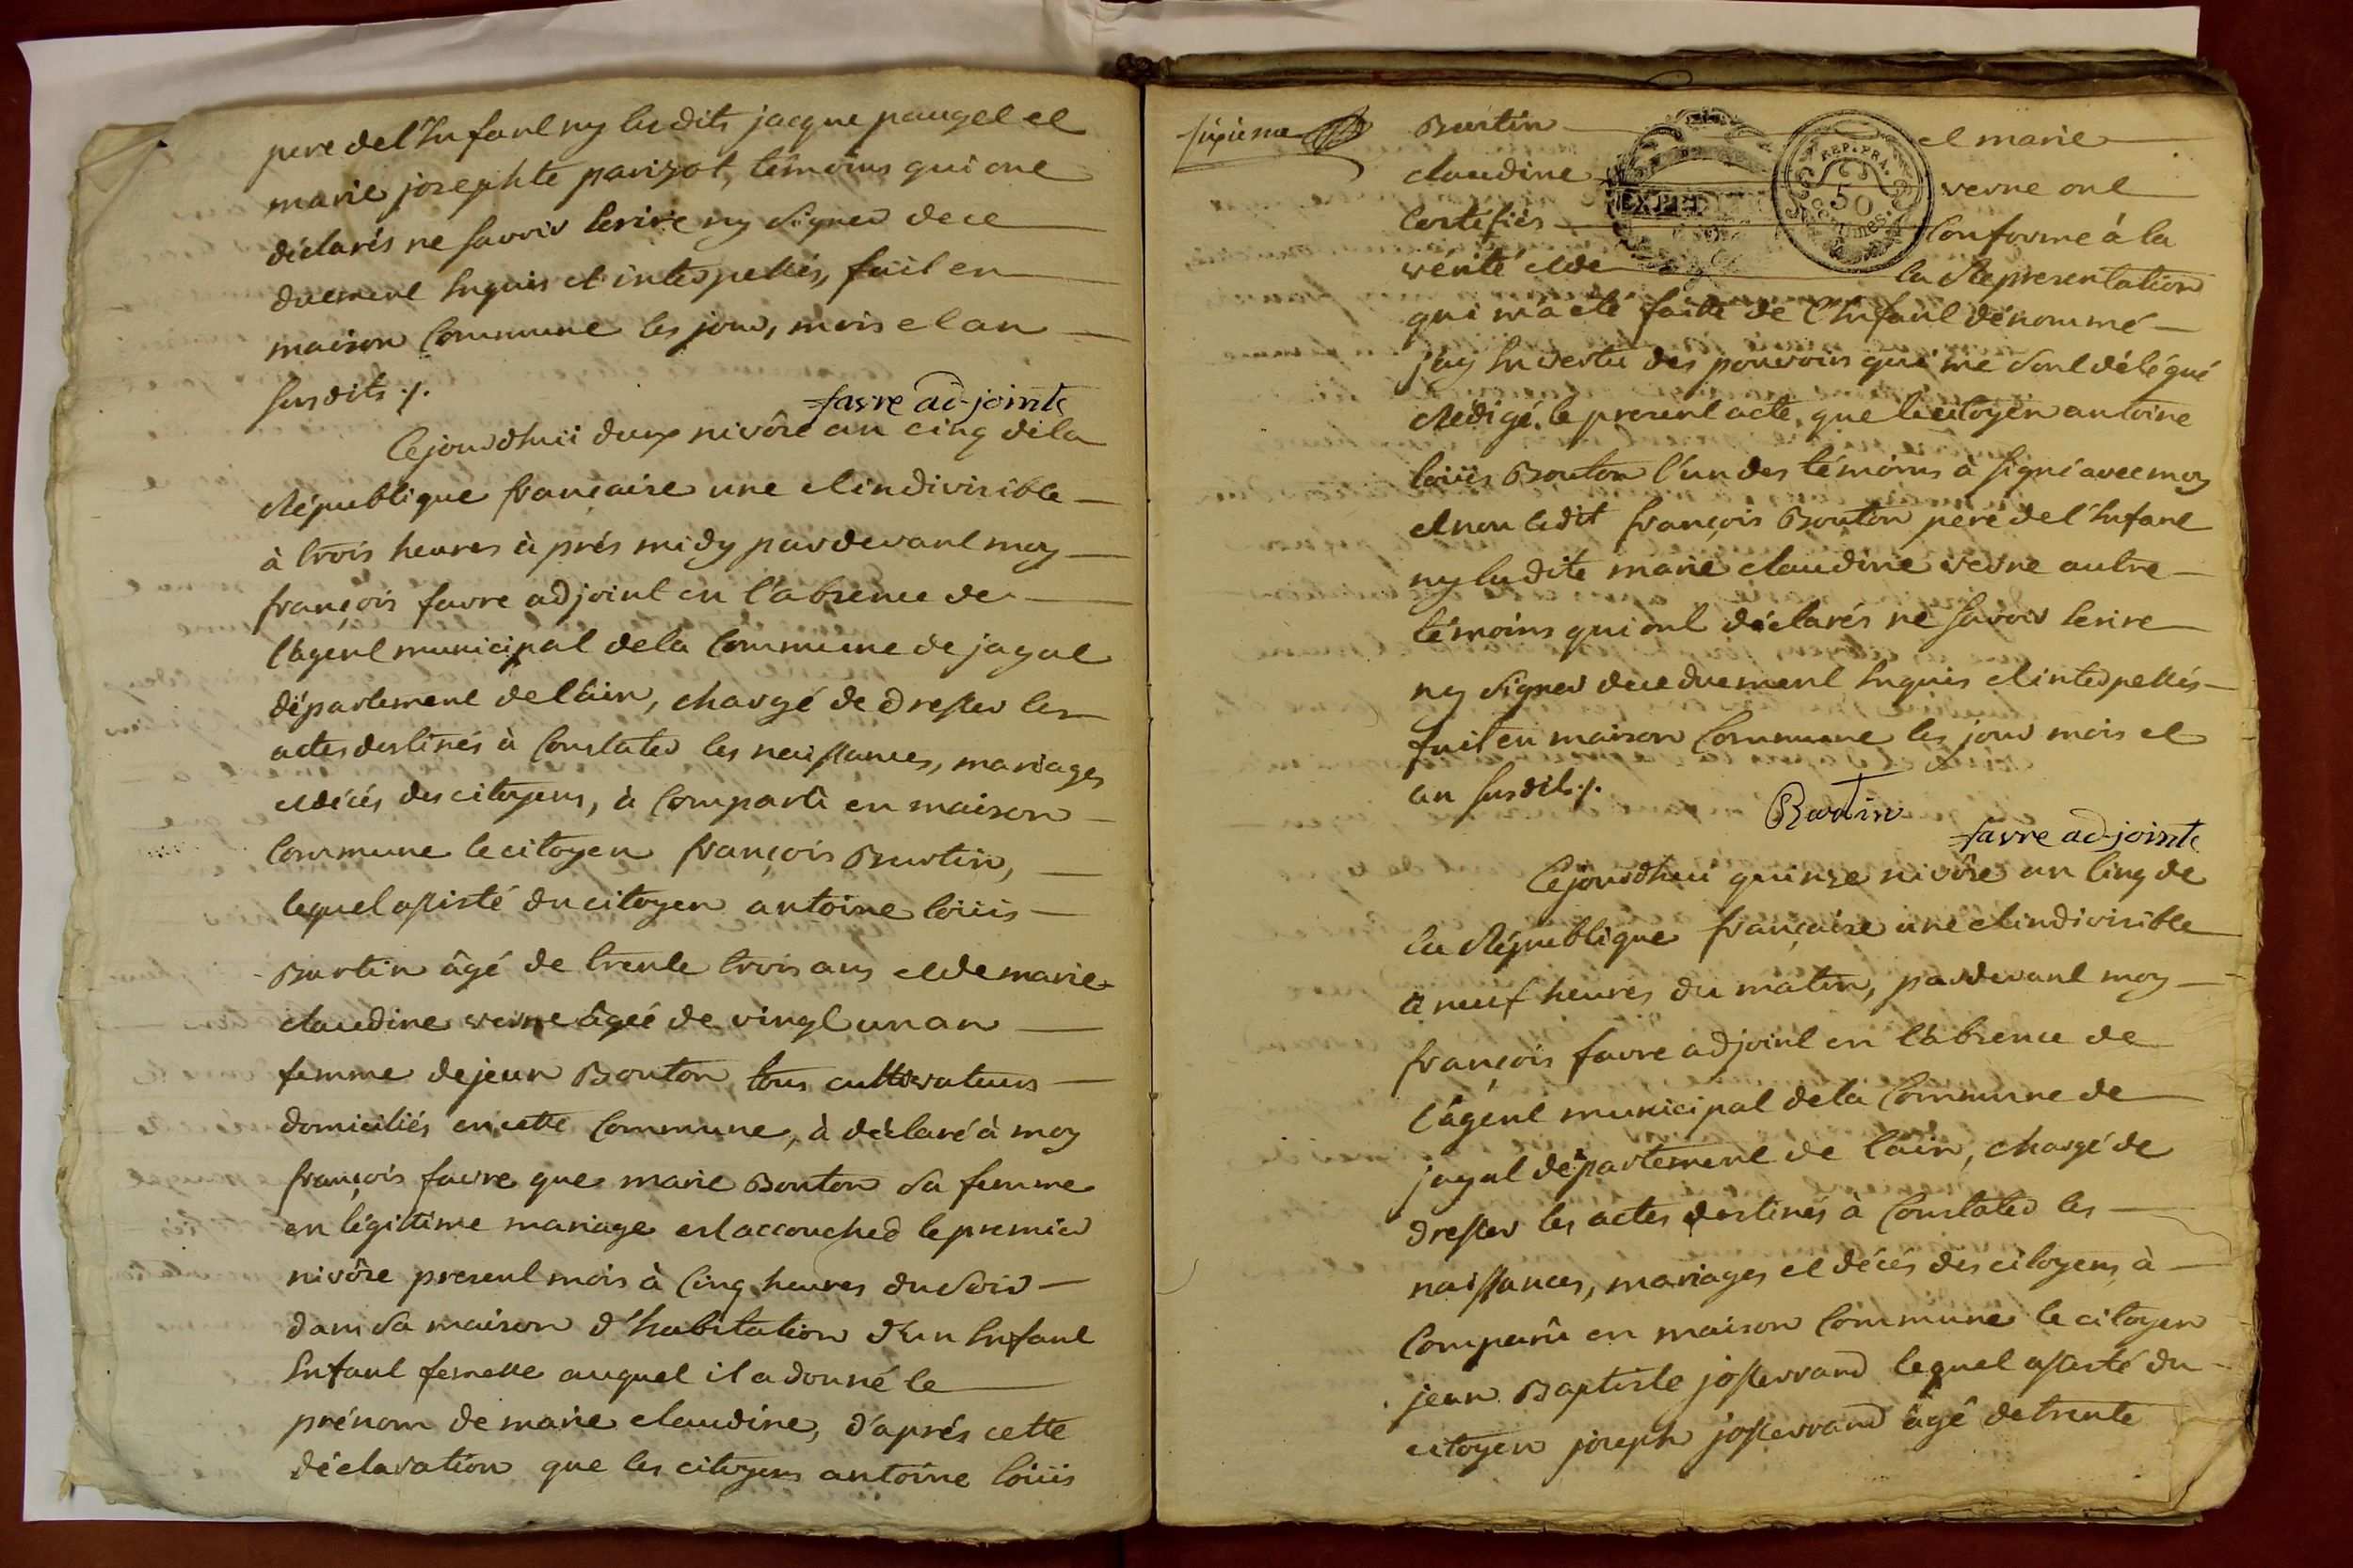 pere de l'Enfant ny les dits jacque paugel et
marie josephte parizot, témoins qui ont
déclarés ne savoir Ecrire ny signer de ce
duement Enquis et interpellés, fait en
maison Commune les jour, mois et an
susdits ·/.
favre ad-joint
Cejourdhuii deux nivôse an cinq dela
République française une et indivisible
à trois heures à prés midy pardevant moy
françois favre adjoint en l'absence de
l'agent municipal dela Commune de jayat
département de l'ain, chargé de dresser les
actes destinés à Constater les naissances, mariages
et décés des citoyens, à Comparû en maison
Commune le citoyen françois Burtin,
lequel assisté du citoyen antoine loüis
Burtin âgé de trente trois ans et de marie
claudine verne âgée de vingt un an
femme de jean Bouton tous cultivateurs
domiciliés en cette Commune, à déclaré à moy
françois favre que marie Bouton sa femme
en légittime mariage est accouched le premier
nivôse present mois à Cinq heures du soir
dans sa maison d'habitation d'un Enfant
Enfant femelle auquel il a donné le
prénom de marie claudine, d'aprés cette
déclaration que les citoyens antoine loüis
sixieme
Burtin et marie
claudine verne ont
Certifiés Conforme à la
vérité et de la Representation
EXPED
REP. FRA.
50
centimes.
qui m'a eté faite de l'Enfant dénommé
j'ay En vertu des pouvoirs qui me sont délégué
Rédigé le present acte, que le citoyen antoine
loüis Bouton l'un des témoins à signé avec moy
et non le dit françois Bouton pere de l'Enfant
ny la dite marie claudine verne autre
témoins qui ont déclarés ne savoir Ecrire
ny signer de ce duement Enquis et interpellés
fait en maison Commune les jour mois et
an susdits ·/.
Burtin
favre ad-joint
Cejourdhui quinze nivôse an Cinq de
la République française une et indivisible
a neuf heures du matin, pardevant moy
françois favre adjoint en l'absence de
l'agent municipal dela Commune de
jayat département de l'ain, chargé de
dresser les actes destinés à Constater les
naissances, mariages et décés des citoyens à
Comparû en maison Commune le citoyen
jean Baptiste josserrand lequel assisté du
citoyen joseph josserrand âgé de trente